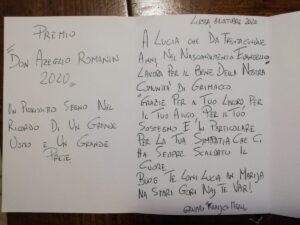 PREMIO
"DON AZEGLIO ROMANIN
2020"
UN PICCOLO SEGNO NEL
RICORDO DI UN GRANDE
UOMO E UN GRANDE
PRETE
LIESSA 31 OTTOBRE 2020
A LUCIA CHE DA TRENTACINQUE
ANNI, NEL NASCONDIMENTO EVANGELICO
LAVORA PER IL BENE DELLA NOSTRA
COMUNITÀ DI GRIMACCO.
GRAZIE PER IL TUO LAVORO, PER
IL TUO AIUTO, PER IL TUO
SOSTEGNO E IN PARTICOLARE
PER LA TUA SIMPATIA CHE CI
HA SEMPRE SCALDATO IL
CUORE.
BUOG TE LONI LUCIA AN MARIJA
NA STARI GORI NAJ TE VAR!
GRUPPO